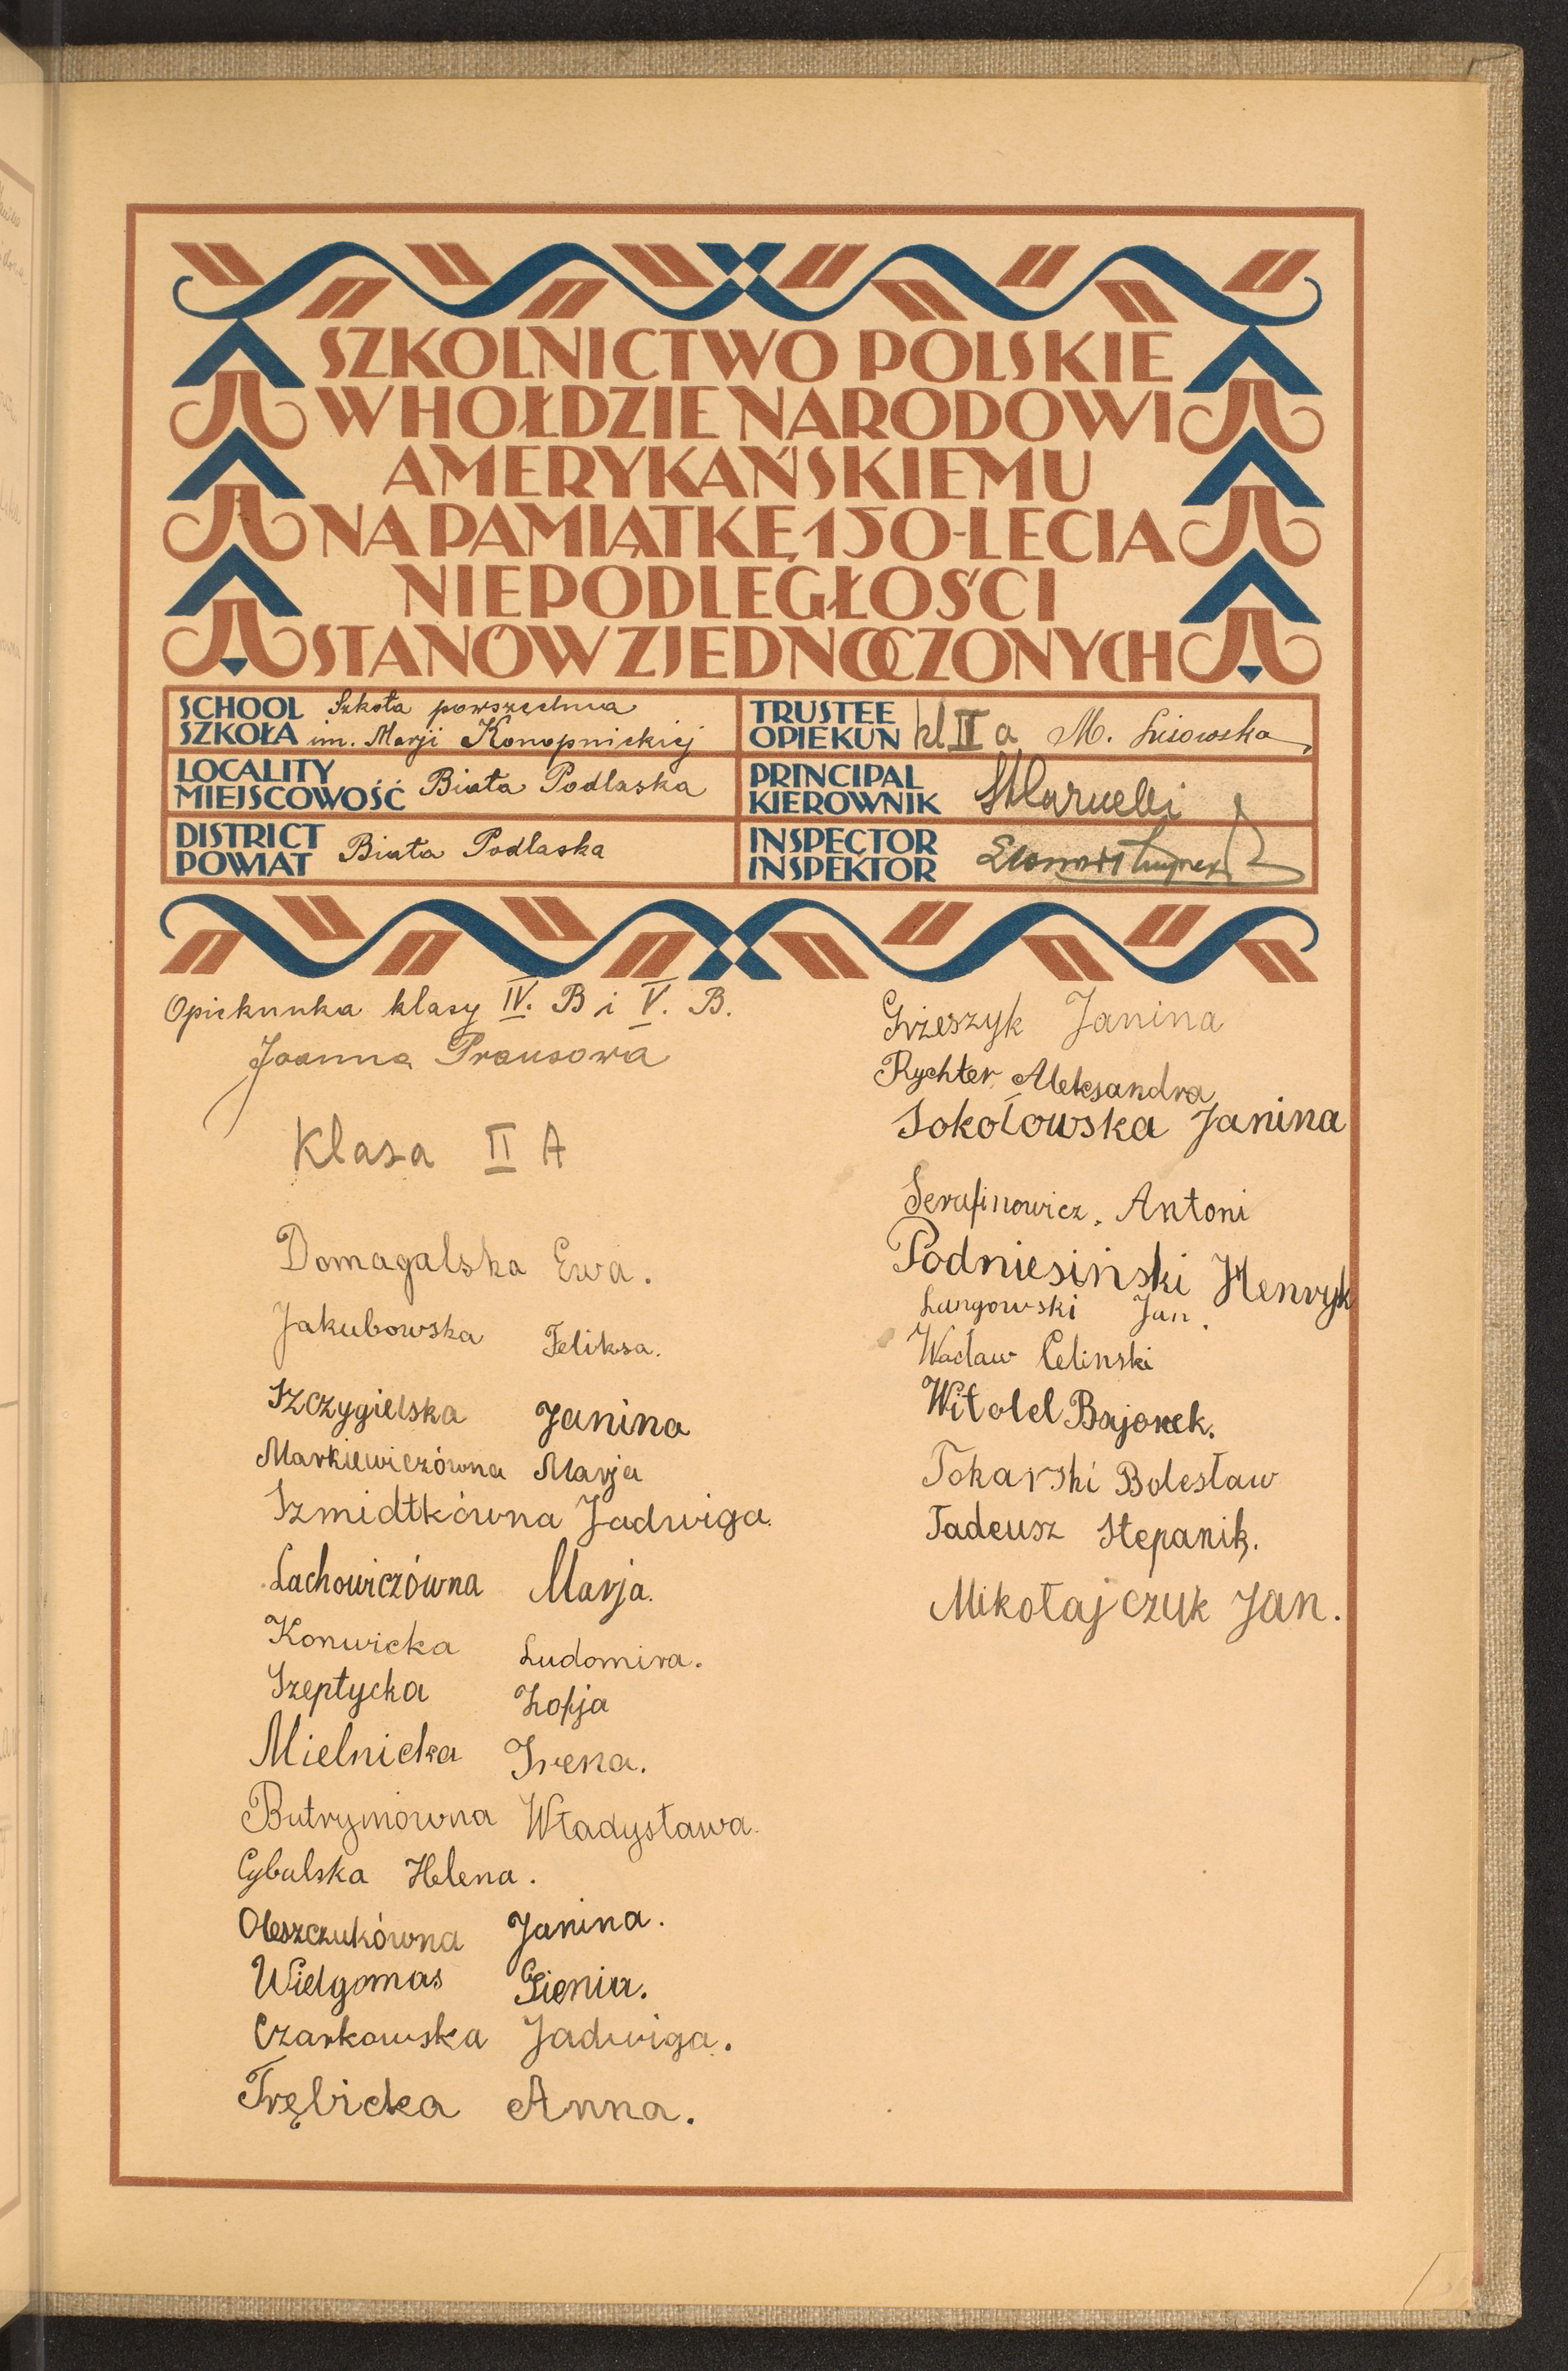 SZKOLNICTWO POLSKIE
W HOŁDZIE NARODOWI
AMERYKAŃSKIEMU
NA PAMIĄTKĘ 150-LECIA
NIEPODLEGŁOŚCI
STANÓW ZJEDNOCZONYCH
SCHOOL Szkoła powszechna
SZKOŁA im. Marji Konopnickiej
TRUSTEE
OPIEKUN kl II a M. Lisowska
LOCALITY
MIEJSCOWOŚĆ Biała Podlaska
PRINCIPAL
KIEROWNIK
DISTRICT
POWIAT Biała Podlaska
INSPECTOR
INSPEKTOR
Opiekunka klasy IV. B i V. B.
Joanna Prausowa
Klasa II A
Domagalska Ewa.
Jakubowska Feliksa.
Szczygielska Janina
Markiewiczówna Marja
Szmidtkówna Jadwiga.
Lachowiczówna Marja.
Konwicka Ludomira.
Szeptycka Zofja
Mielnicka Irena.
Butrymówna Władysława.
Cybulska Helena.
Oleszczukówna Janina.
Wielgomas Gienia.
Czarkowska Jadwiga.
Trębicka Anna.
Grzeszyk Janina
Rychter Aleksandra
Sokołowska Janina
Serafinowicz. Antoni
Podniesiński Henryk
Lungowski Jan.
Wacław Celinski
Witold Bajonek.
Tokarski Bolesław
Tadeusz Stepanik.
Mikołajczyk Jan.